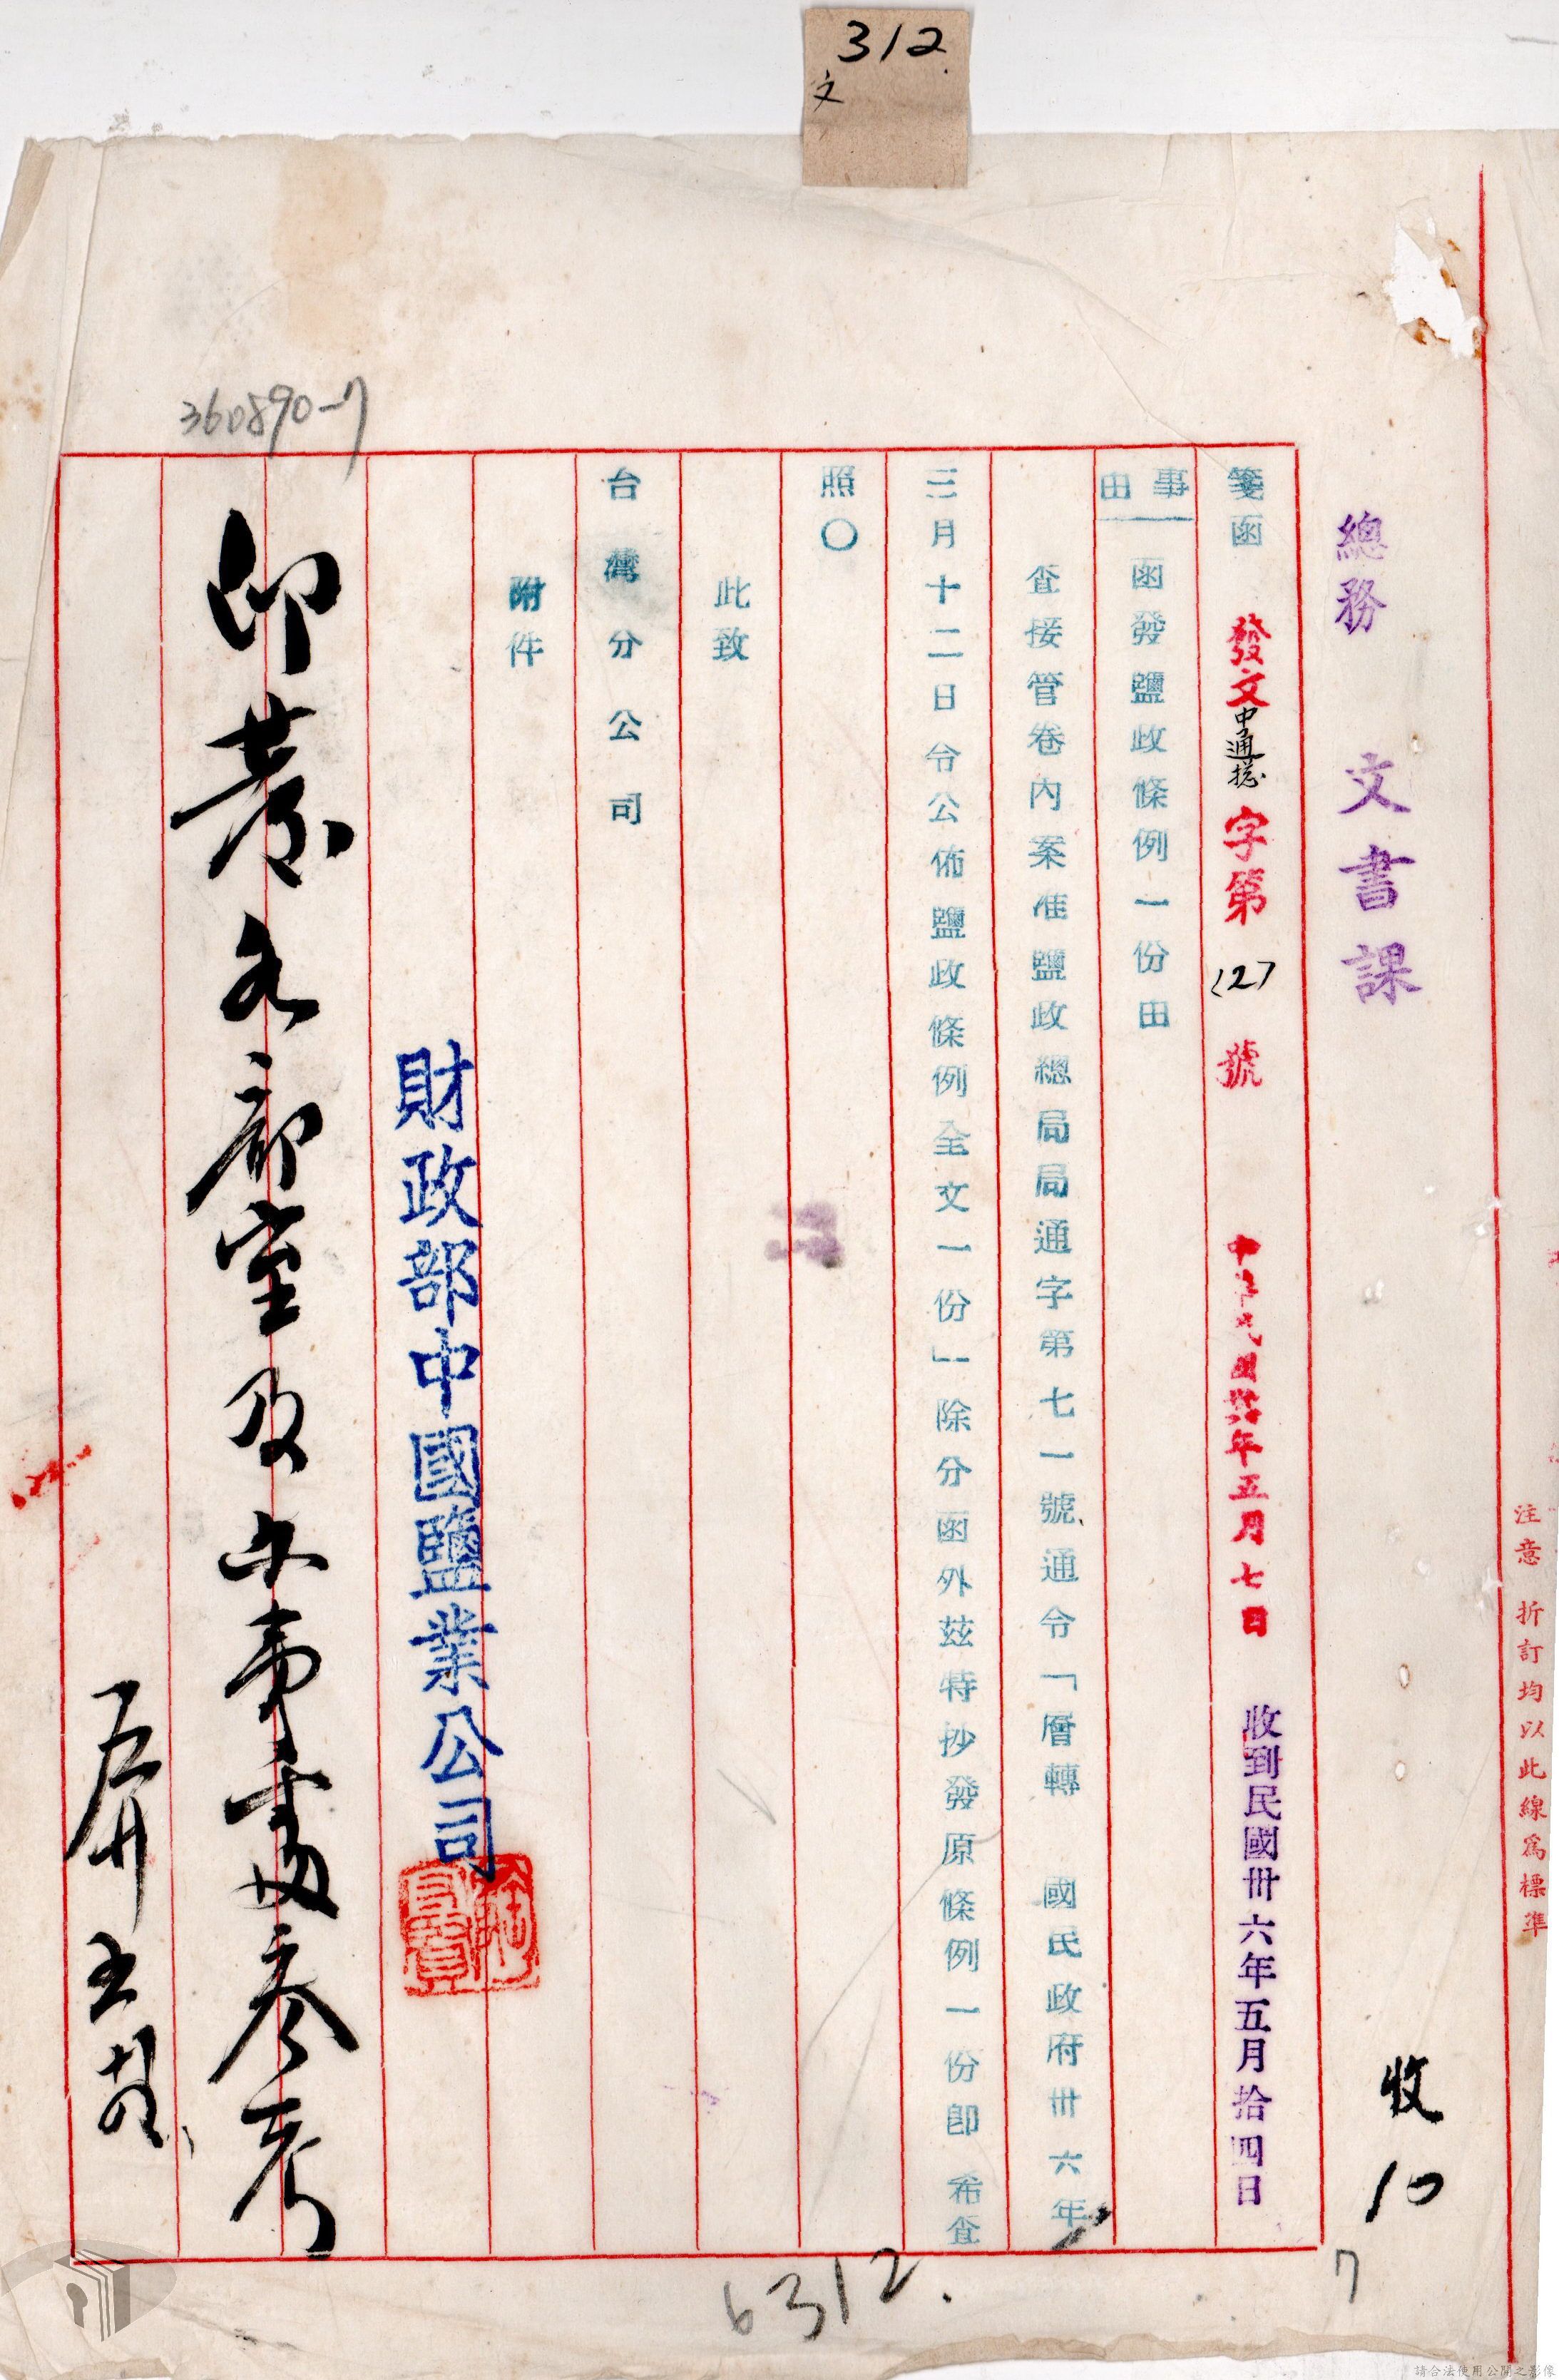 312.
文
注意 折訂均以此線為標準
總務 文書課
收10
7
箋函 發文中通總字第127號 中華民國卅六年五月七日 收到民國卅六年五月拾四日
事由 函發鹽政條例一份由
查接管卷內案准鹽政總局局通字第七一號通令「層轉 國民政府卅六年
三月十二日令公佈鹽政條例全文一份」除分函外茲特抄發原條例一份卽 希查
照〇
此致
台灣分公司
附件
財政部中國鹽業公司
印發各部室及辦事處參考
360890-7
6312.
請合法使用公開之影像